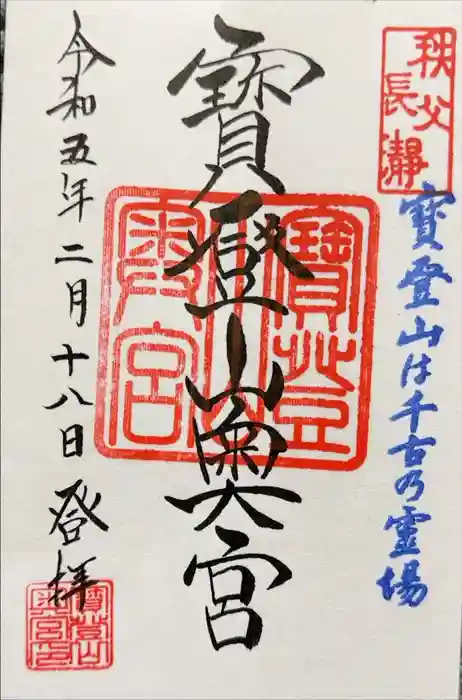 秩父
長瀞
寶登山は千古乃霊場
寶登山奥宮
寶登山
奥宮
令和五年二月十八日登拝
寶登山
奥宮印